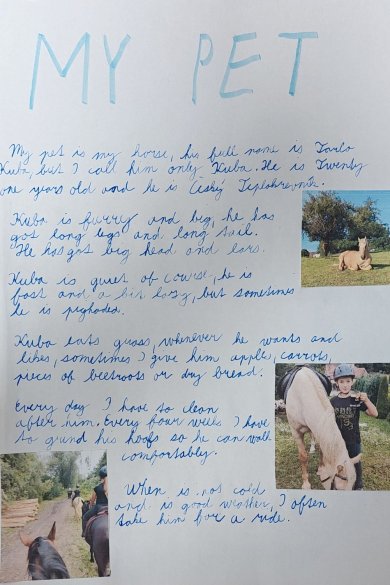 MY PET
My pet is my horse, his full name is Tarlo
Kuba, but I call him only Kuba. He is Twenty
one years old and he is Český Teplokrevník.
Kuba is furry and big, he has
got long legs and long tail.
He has got big head and ears.
Kuba is quiet of course, he is
fast and a bit lazy, but sometimes
he is pigheaded.
Kuba eats grass, whenever he wants and
likes, sometimes I give him apples, carrots,
pieces of beetroots or dry bread.
Every day I have to clean
after him. Every four weeks I have
to grind his hoofs so he can walk
comfortably.
When is not cold
and is good weather, I often
take him for a ride.